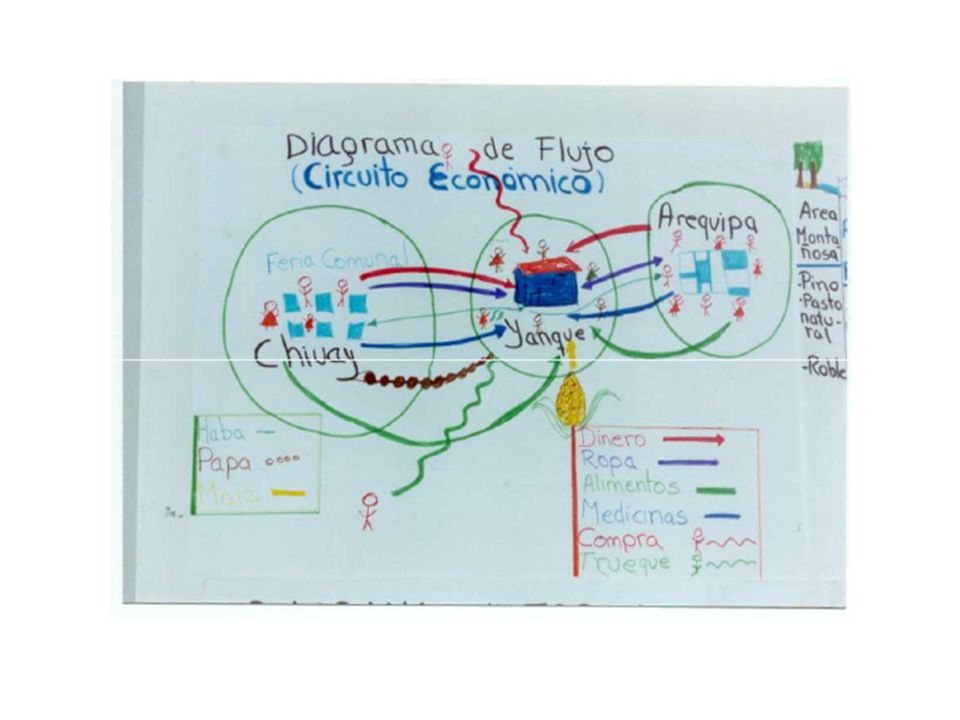 Diagrama de Flujo
(Circuito Económico)
Arequipa
Feria Comunal
Chivay
Yanque
Area
Monta
ñosa
·Pino
·Pasto
natu-
ral
-Roble
Haba
Papa
Maiz
Dinero
Ropa
Alimentos
Medicinas
Compra
Trueque